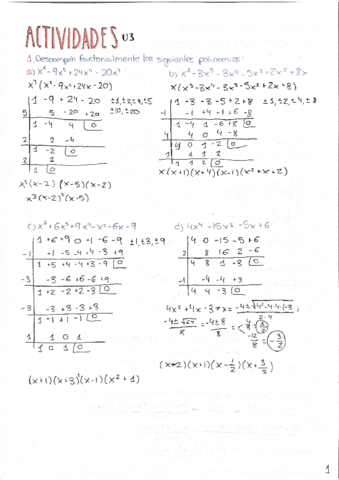 ACTIVIDADES U3
1. Descompón factorialmente los siguientes polinomios:
a) x⁶-9x⁵+24x⁴-20x³
x³(x³-9x²+24x-20)
1 -9 +24 -20 ±1,±2,±4,±5
5 5 -20 +20 ±10,±20
1 -4 4 0
2 2 -4
1 -2 0
2 2
1 0
x³(x-2)(x-5)(x-2)
x³(x-2)²(x-5)
b) x⁶-3x⁵-3x⁴-5x³+2x²+8x
x(x⁵-3x⁴-3x³-5x²+2x+8)
1 -3 -3 -5 +2 +8 ±1,±2,±4,±8
-1 -1 +4 -1 +6 -8
1 -4 1 -6 +8 0
4 4 0 4 -8
1 0 1 -2 0
1 1 1 2
1 1 2 0
x(x+1)(x+4)(x-1)(x²+x+2)
c) x⁶+6x⁵+9x⁴-x²-6x-9
1 +6 +9 0 -1 -6 -9 ±1,±3,±9
-1 -1 -5 -4 +4 -3 +9
1 +5 +4 -4 +3 -9 0
-3 -3 -6 +6 -6 +9
1 +2 -2 +2 -3 0
-3 -3 +3 -3 +3
1 -1 +1 -1 0
1 1 0 1
1 0 1 0
(x+1)(x+3)²(x-1)(x²+1)
d) 4x⁴-15x²-5x+6
4 0 -15 -5 +6
2 8 16 2 -6
4 8 1 -3 0
-1 -4 -4 +3
4 4 -3 0